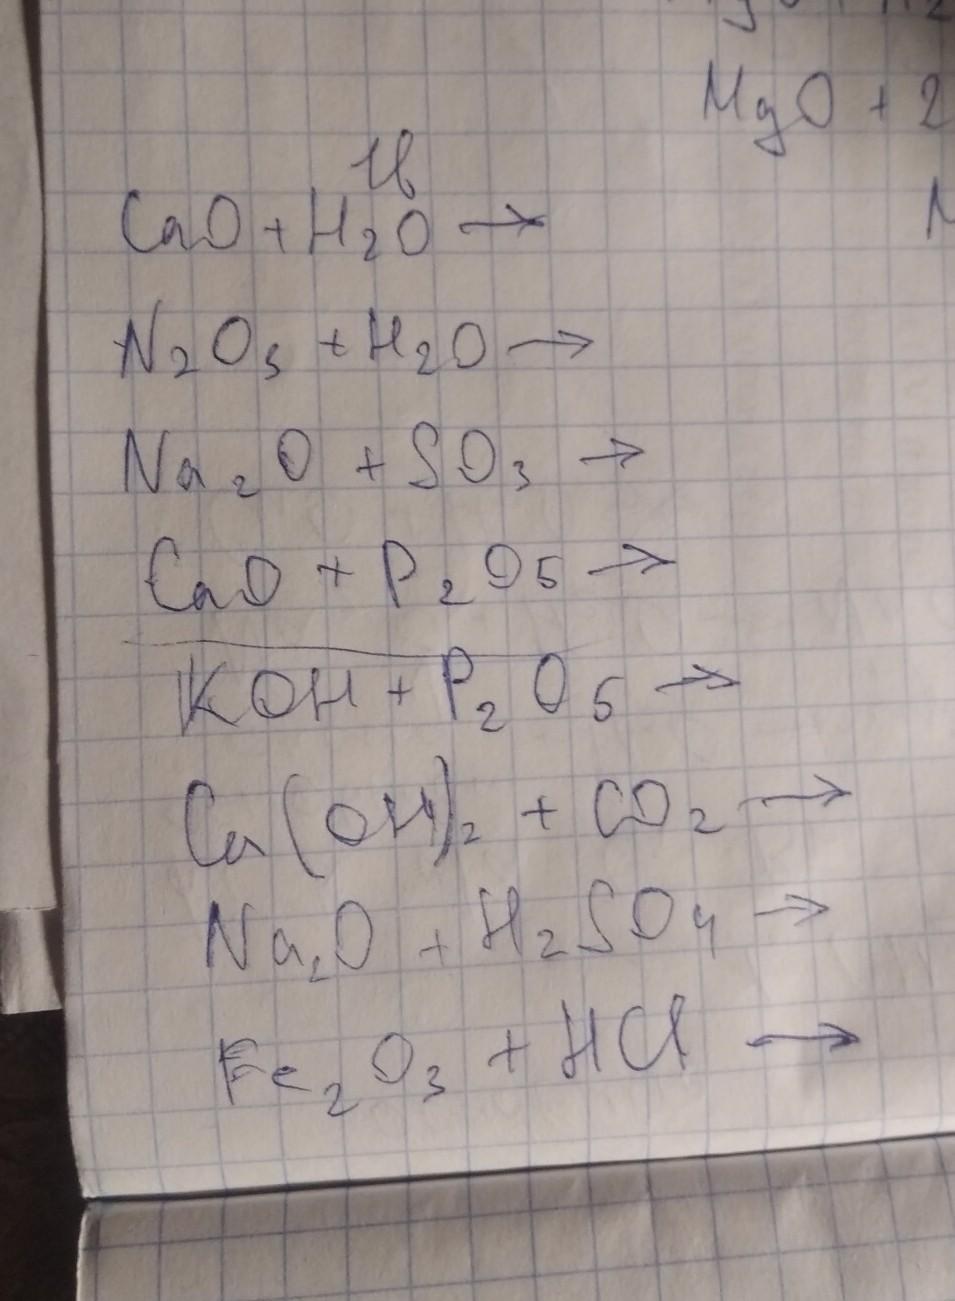 MgO + 2
CaO + H₂O →
N₂O₅ + H₂O →
Na₂O + SO₃ →
CaO + P₂O₅ →
KOH + P₂O₅ →
Ca(OH)₂ + CO₂ →
Na₂O + H₂SO₄ →
Fe₂O₃ + HCl →